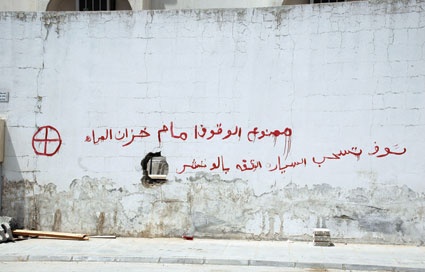 ممنوع الوقوف امام خزان المياه
سوف تسحب السياره الواقفه بالونش